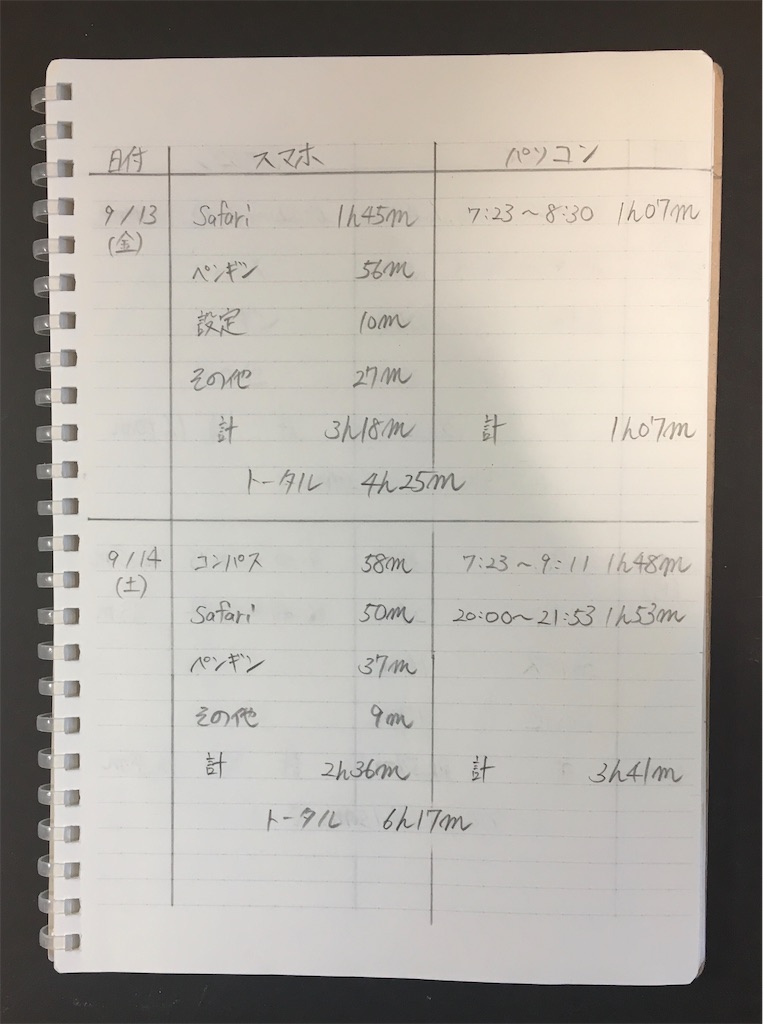 日付 スマホ パソコン
9/13 Safari 1h45m 7:23〜8:30 1h07m
(金)
ペンギン 56m
設定 10m
その他 27m
計 3h18m 計 1h07m
トータル 4h25m
9/14 コンパス 58m 7:23〜9:11 1h48m
(土)
Safari 50m 20:00〜21:53 1h53m
ペンギン 37m
その他 9m
計 2h36m 計 3h41m
トータル 6h17m